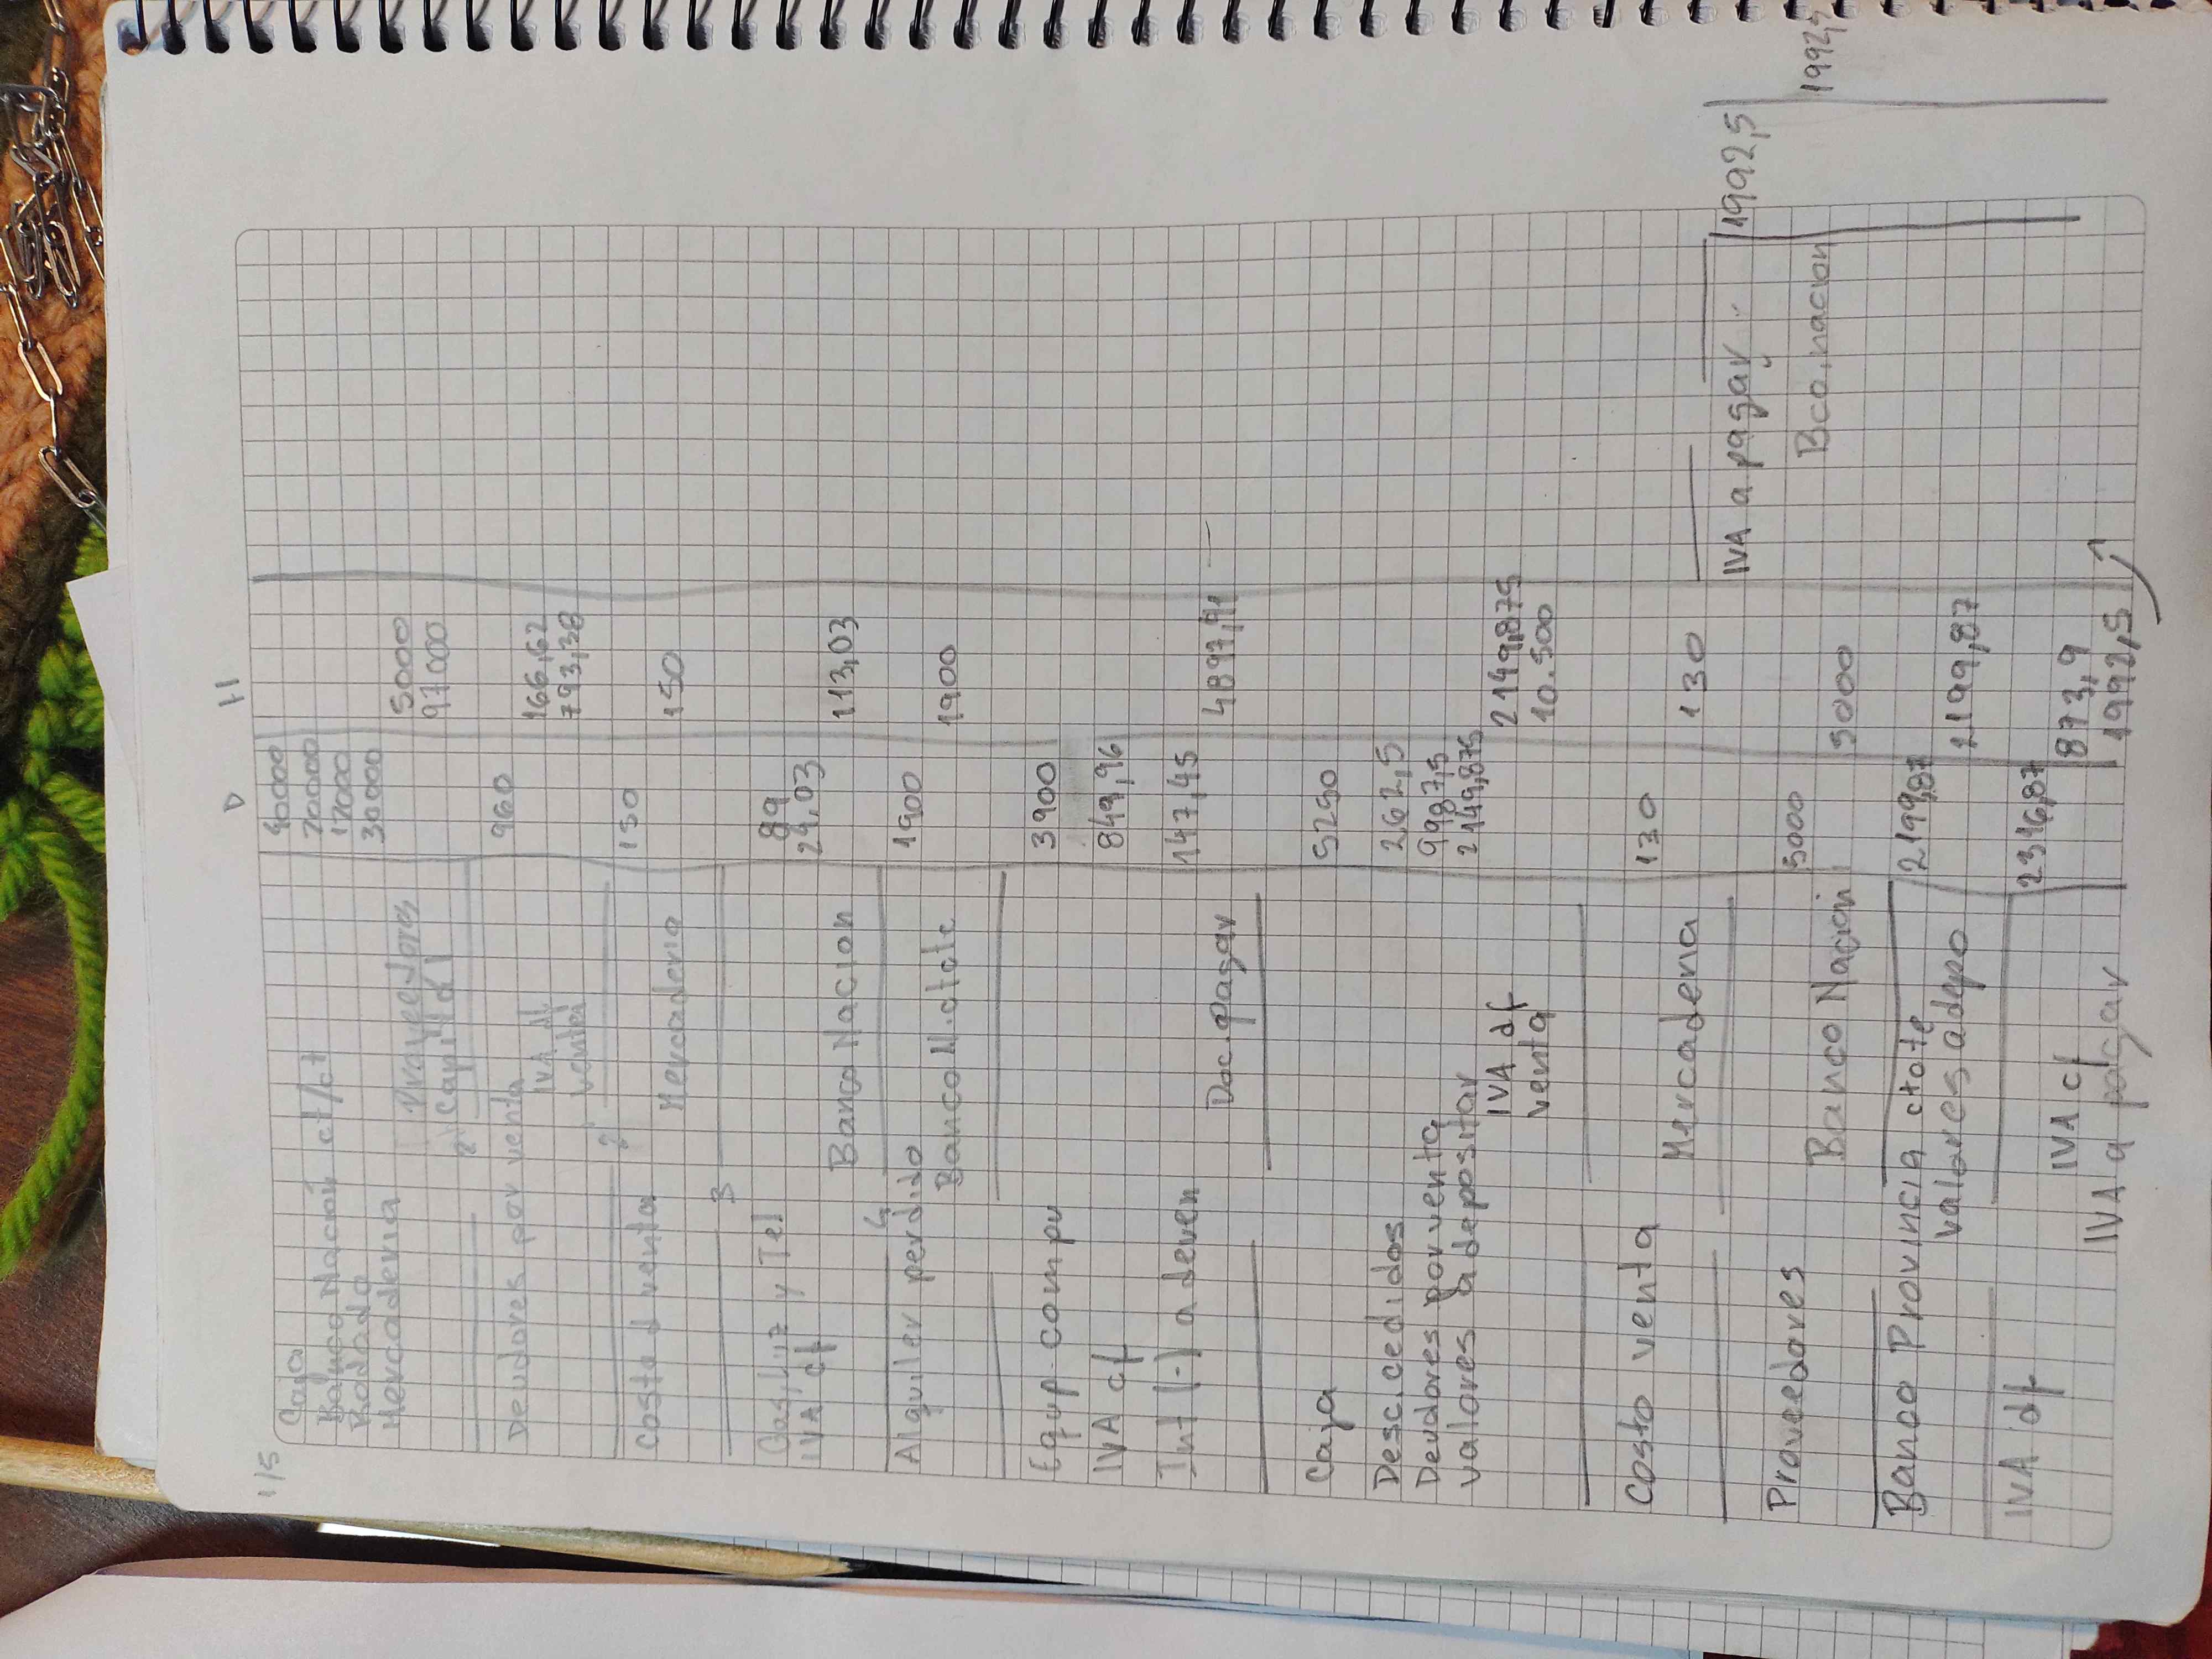 1/5 D H
Caja 40000
Banco Nación ct/ct 20000
Rodado 12000
Mercaderia 30000
Proveedores 5000
Capital 97000
2
Deudores por venta 960
IVA df 166,62
venta 793,38
2'
Costo d venta 150
Mercaderia 150
3
Gas, luz y Tel 89
IVA cf 24,03
Banco Nacion 113,03
4
Alquiler perdido 1900
Banco N. ctcte 1900
Equip. compu 3900
IVA cf 849,96
Int (-) a deven 147,45
Doc. pagar 4897,41
Caja 5250
Desc. cedidos 262,5
Deudores por venta 9987,5
valores a depositar 2149,875
IVA df 2149,875
venta 10.500
Costo venta 130
Mercaderia 130
Proveedores 5000
Banco Nación 5000
Banco Provincia ctcte 2199,87
valores a depo 2199,87
IVA df 2316,87
IVA cf 873,9
IVA a pagar 1992,5
IVA a pagar 1992,5
Bco. nacion 1992,5